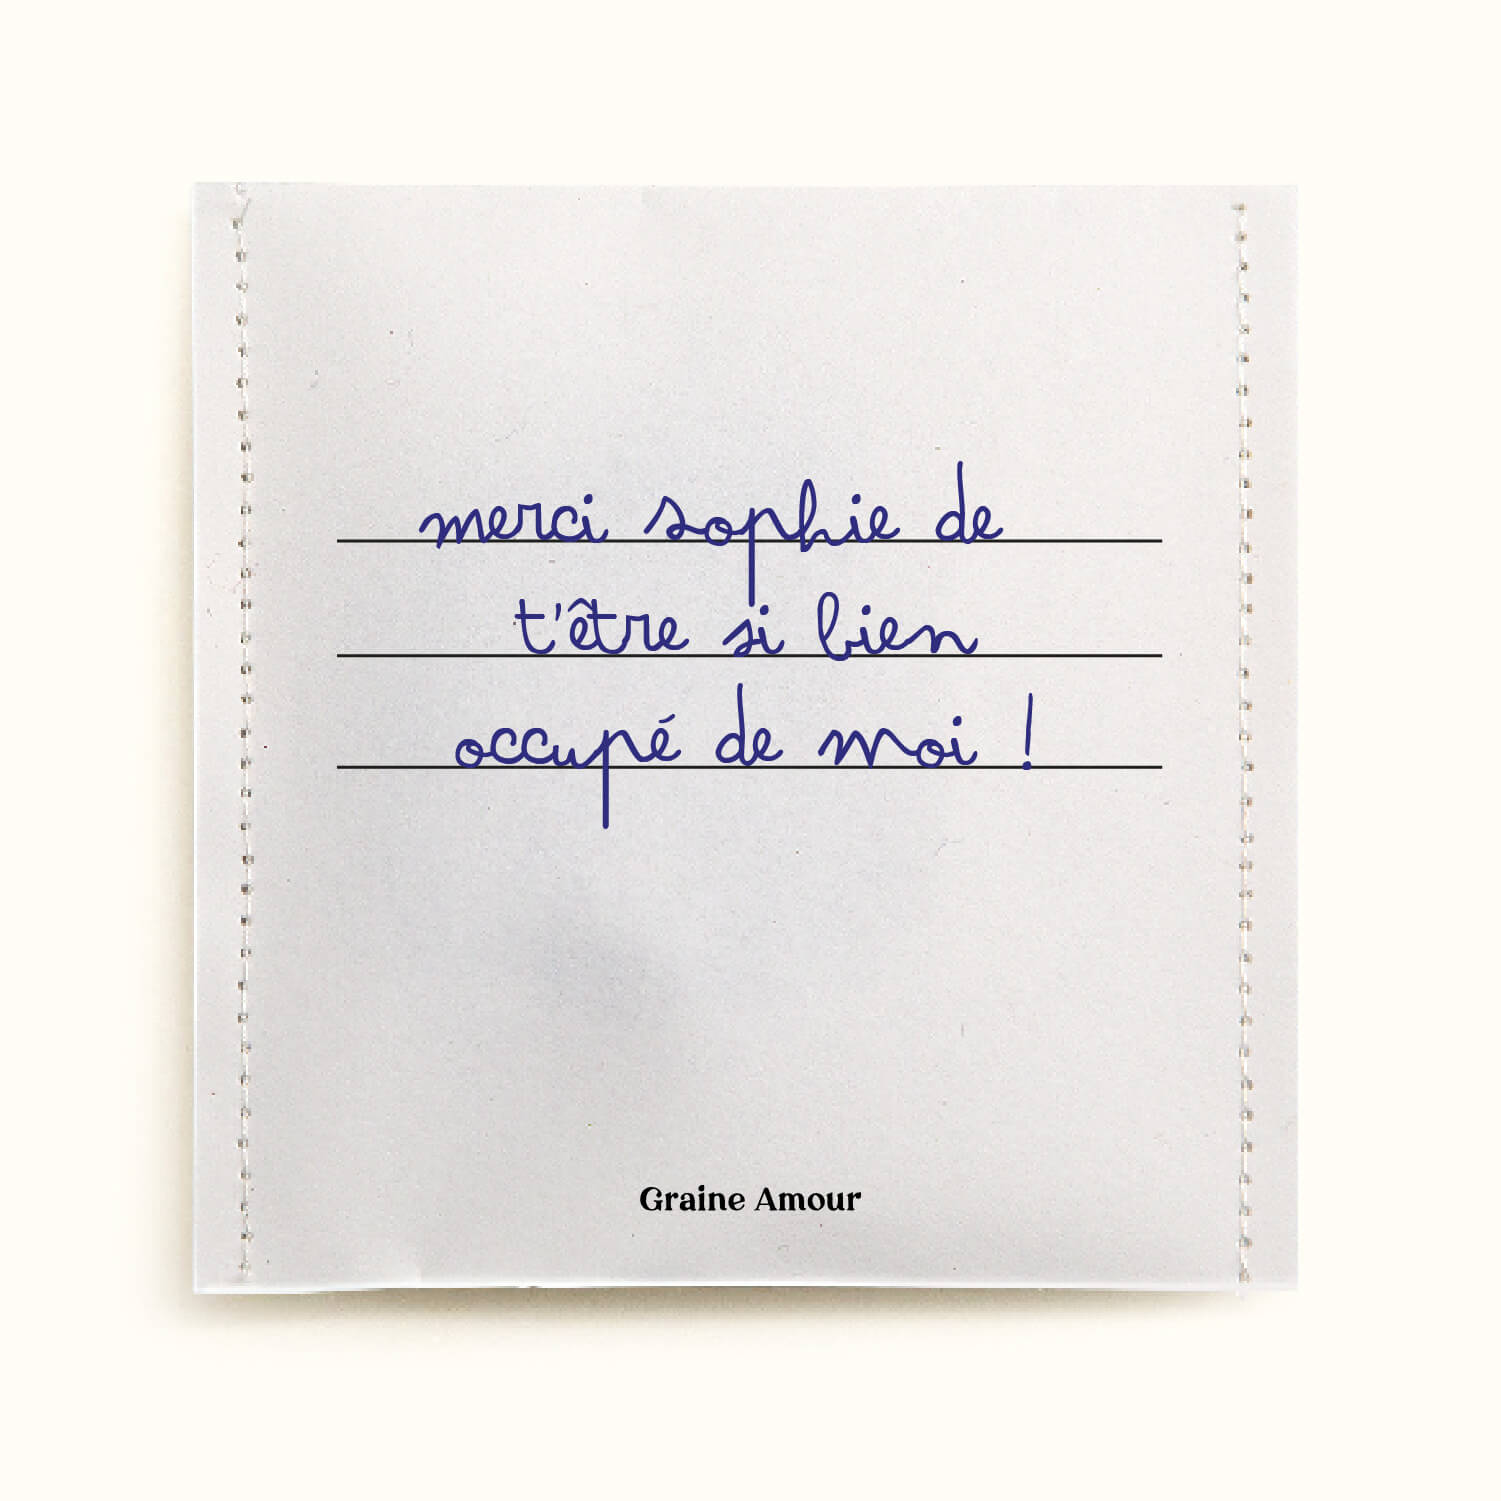 merci sophie de
t'être si bien
occupé de moi !
Graine Amour